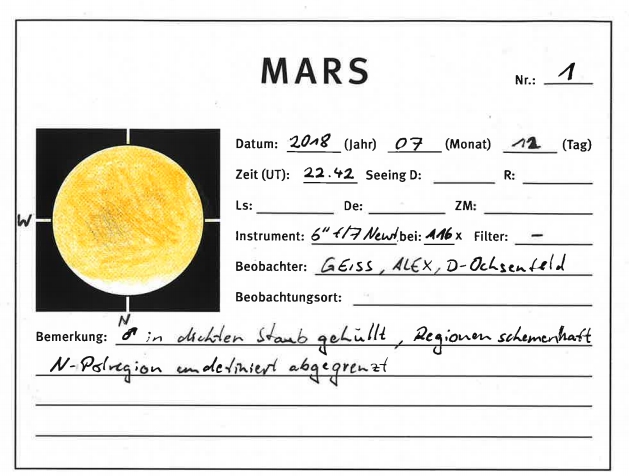 MARS
Nr.: 1
Datum: 2018 (Jahr) 07 (Monat) 12 (Tag)
Zeit (UT): 22.42 Seeing D: R:
W
Ls: De: ZM:
Instrument: 6" f/7 Newt. bei: 116 x Filter: –
Beobachter: GEISS, ALEX, D-Ochsenfeld
Beobachtungsort:
N
Bemerkung: ♂ in dichten Staub gehüllt, Regionen schemenhaft
N-Polregion undefiniert abgegrenzt